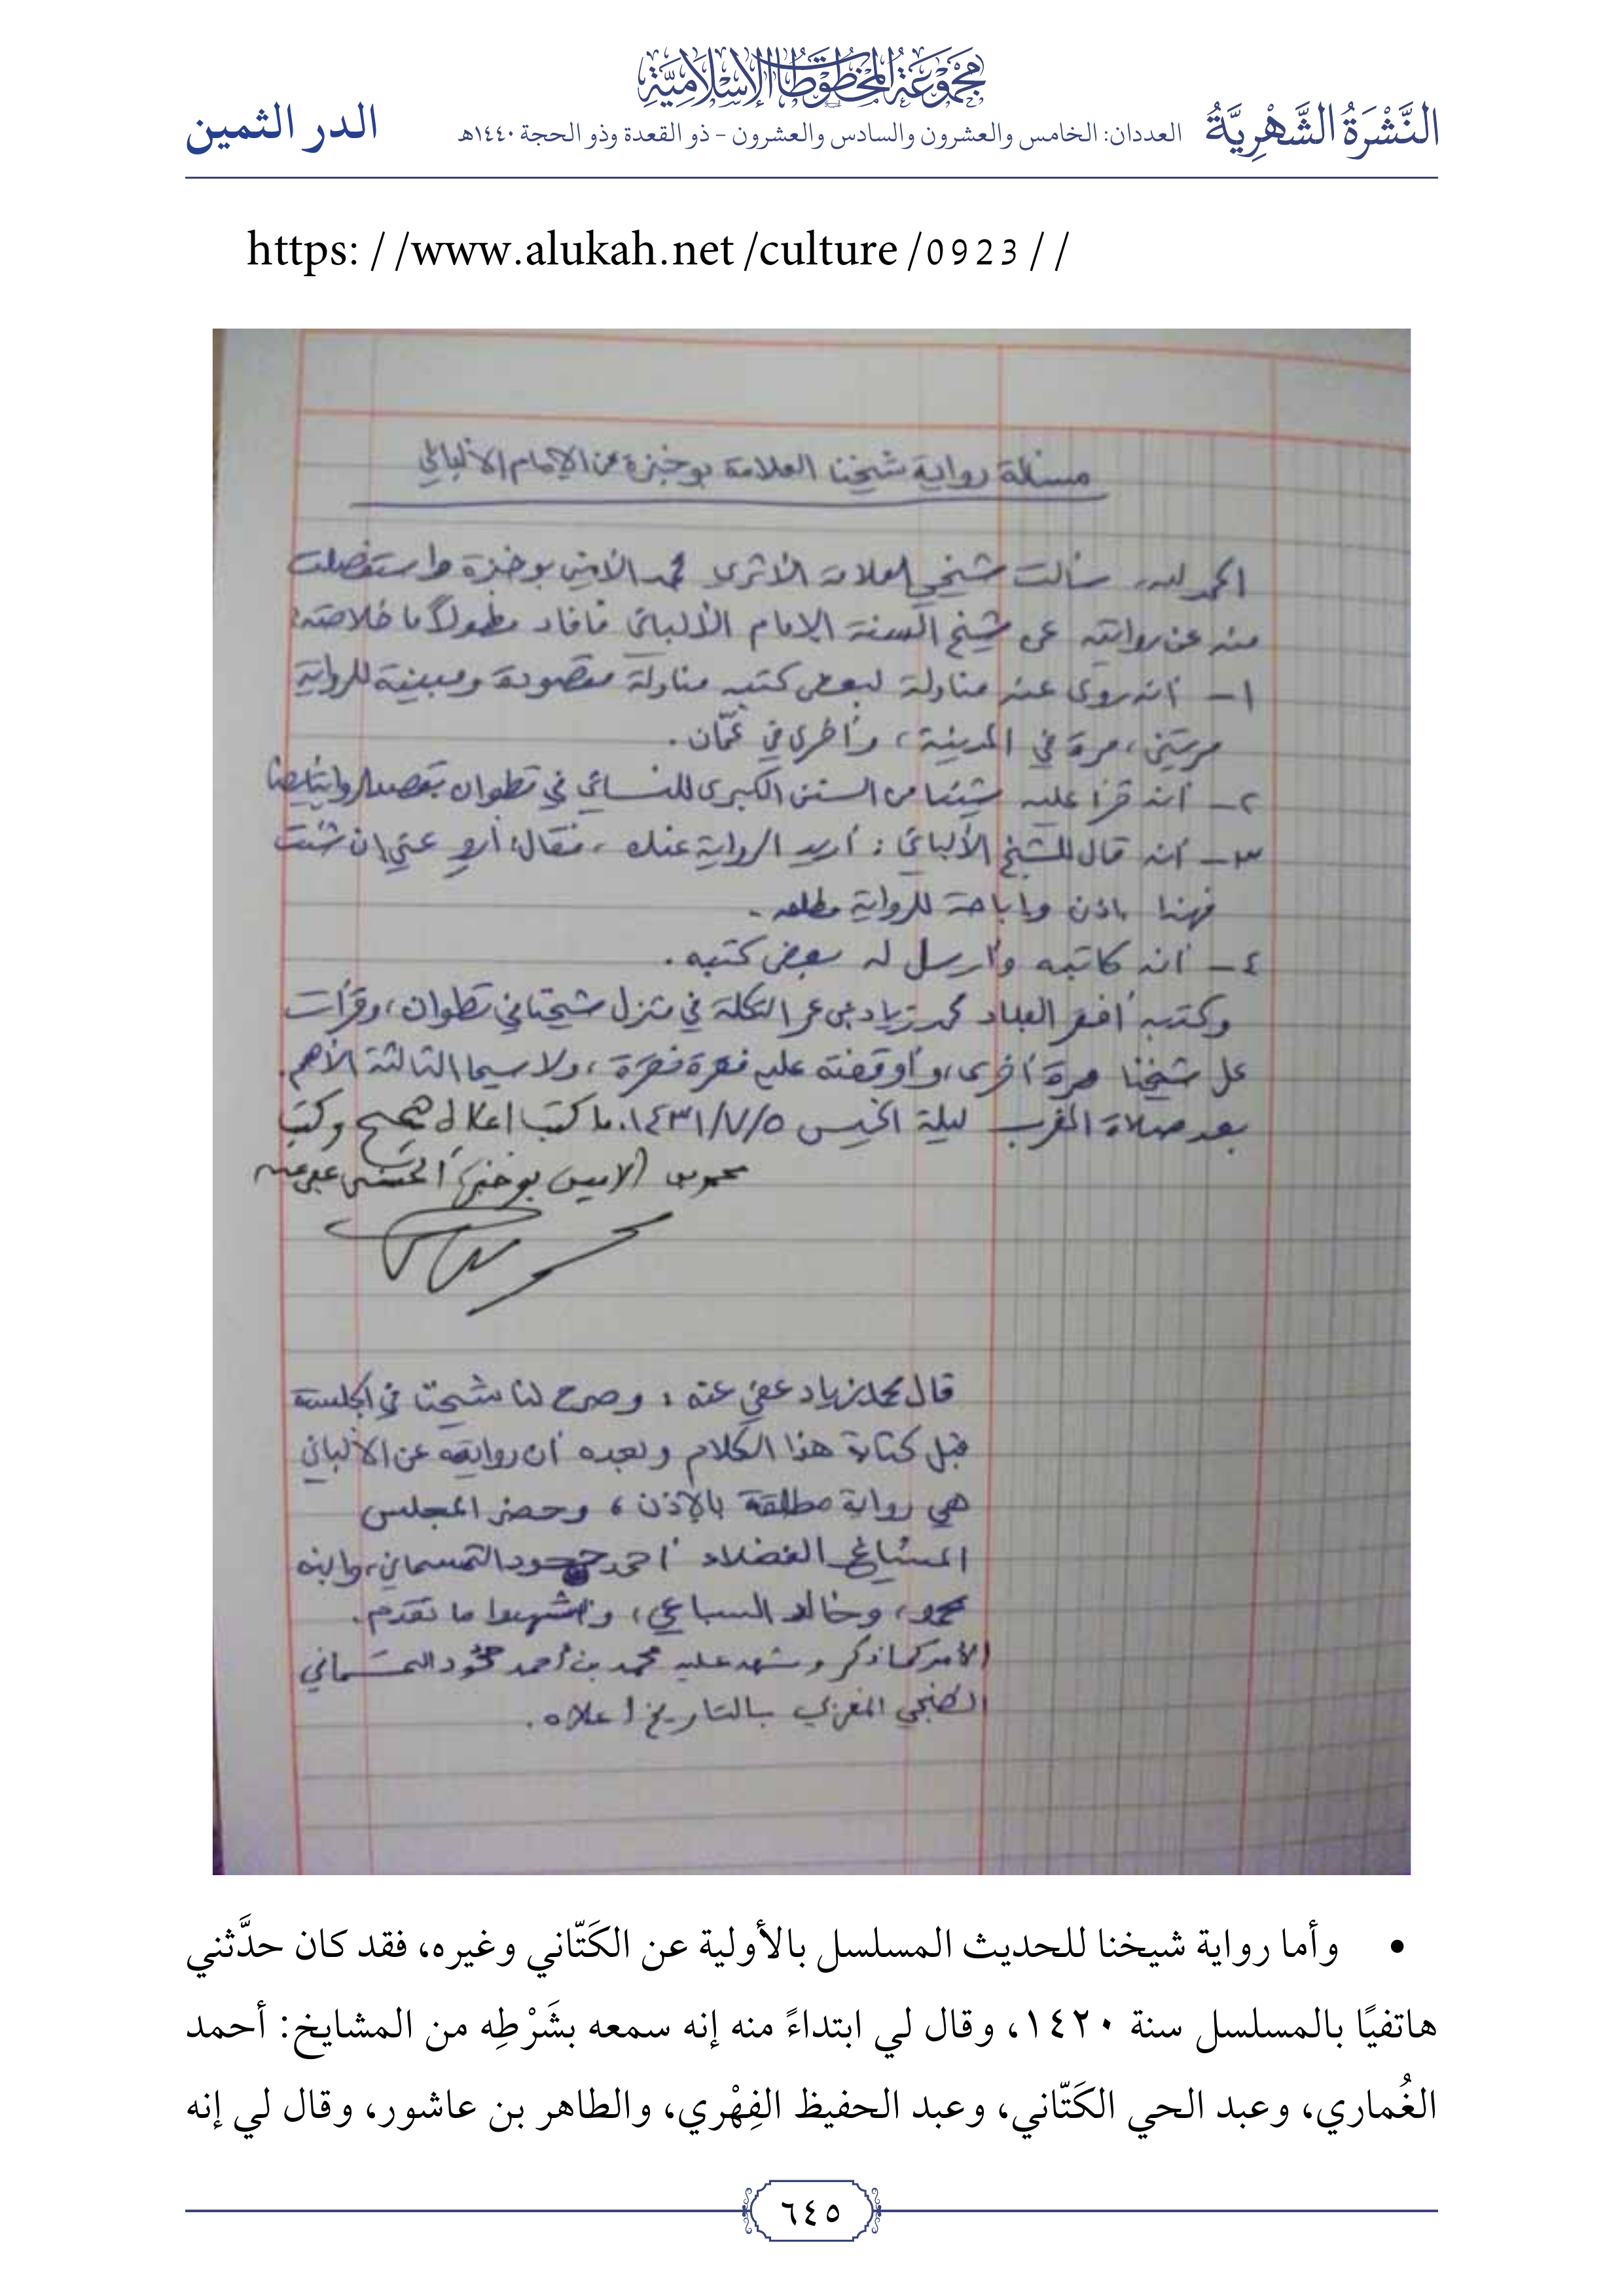 مجموعة المخطوطات الإسلامية
النَّشْرَةُ الشَّهْرِيَّةُ العددان: الخامس والعشرون والسادس والعشرون - ذو القعدة وذو الحجة ١٤٤٠هـ الدر الثمين
https: / /www.alukah.net /culture /0923 / /
مسألة رواية شيخنا العلامة بوخبزة عن الإمام الألباني
الحمد لله، سألت شيخي العلامة الأثري محمد الأمين بوخبزة واستفصلت
منه عن روايته عن شيخ السنة الإمام الألباني فأفاد مطولاً ما خلاصته:
١- أنه روى عنه مناولة لبعض كتبه مناولة مقصودة ومبينة للرواية
مرتين، مرة في المدينة، وأخرى في عمّان.
٢- أنه قرأ عليه شيئا من السنن الكبرى للنسائي في تطوان بقصد الرواية أيضا
٣- أنه قال للشيخ الألباني: أريد الرواية عنك، فقال: أروِ عني إن شئت
فهذا إذن وإباحة للرواية مطلقه.
٤- أنه كاتبه وأرسل له بعض كتبه.
وكتبه أفقر العباد محمد زياد بن عمر التكلة في منزل شيخنا في تطوان، وقرأت
على شيخنا مرة أخرى، وأوقفته عليه فقرة فقرة، ولا سيما الثالثة الأهم.
بعد صلاة المغرب ليلة الخميس ١٤٣١/٧/٥. ما كتب أعلاه صحيح وكتب
محمد الأمين بوخبزة الحسني عفي عنه
قال محمد زياد عفي عنه: وصرح لنا شيخنا في الجلسة
قبل كتابة هذا الكلام وبعده أن روايته عن الألباني
هي رواية مطلقة بالإذن، وحضر المجلس
المشايخ الفضلاء أحمد التمسماني، وابنه
محمد، وخالد السباعي، وأشهدوا ما تقدم.
الأمر كما ذكر وشهد عليه محمد بن أحمد حمود التمسماني
الطنجي المغربي بالتاريخ أعلاه.
• وأما رواية شيخنا للحديث المسلسل بالأولية عن الكَتّاني وغيره، فقد كان حدَّثني
هاتفيًا بالمسلسل سنة ١٤٢٠، وقال لي ابتداءً منه إنه سمعه بشَرْطِه من المشايخ: أحمد
الغُماري، وعبد الحي الكَتّاني، وعبد الحفيظ الفِهْري، والطاهر بن عاشور، وقال لي إنه
٦٤٥